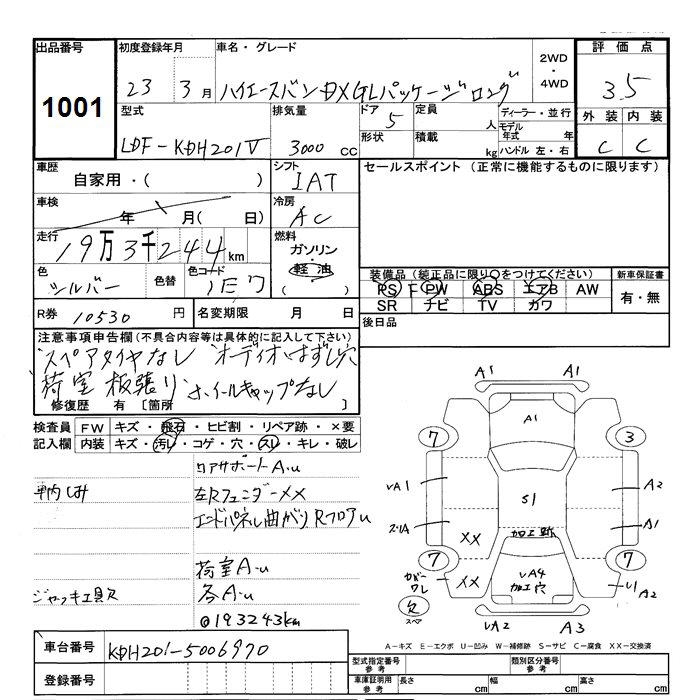 出品番号
1001
初度登録年月
23 3月
車名・グレード
ハイエースバン DX GLパッケージ ロング
2WD
・
4WD
評価点
3.5
外装 内装
C C
型式
LDF-KDH201V
排気量
3000 cc
ドア 5
形状
定員 人
積載 kg
ディーラー・並行
モデル年式 年
ハンドル 左・右
車歴
自家用・( )
シフト
IAT
セールスポイント (正常に機能するものに限ります)
車検
年 月( 日)
冷房
AC
走行
19万3千244km
燃料
ガソリン
軽油
色
シルバー
色替
色コード
1E7
装備品(純正品に限り○をつけてください)
PS F PW ABS エアB AW
SR ナビ TV カワ
新車保証書
有・無
R券 10530円
名変期限 月 日
後日品
注意事項申告欄(不具合内容等は具体的に記入して下さい)
スペアタイヤなし オーディオはずし穴
荷室 板張り ホイールキャップなし
修復歴 有 [箇所
検査員記入欄
FW キズ・飛石・ヒビ割・リペア跡・×要
内装 キズ・汚レ・コゲ・穴・スレ・キレ・破レ
リアサポートAu
車内しみ
左Rフェンダー××
エンドパネル曲がり RフロアU
荷室Au
ジャッキ工具欠
各Au
@193243km
A1 A1
A1
7 3
VA1 S1 A2
A1
加工跡
XX
7 7
XX
カバーワレ
VA4
加工穴
U1 A2
欠
スペア
VA2 A3
A-キズ E-エクボ U-凹み W-補修跡 S-サビ C-腐食 XX-交換済
車台番号
KDH201-5006970
登録番号
型式指定番号
参考
類別区分番号
参考
車庫証明用
参考
長さ cm 幅 cm 高さ cm